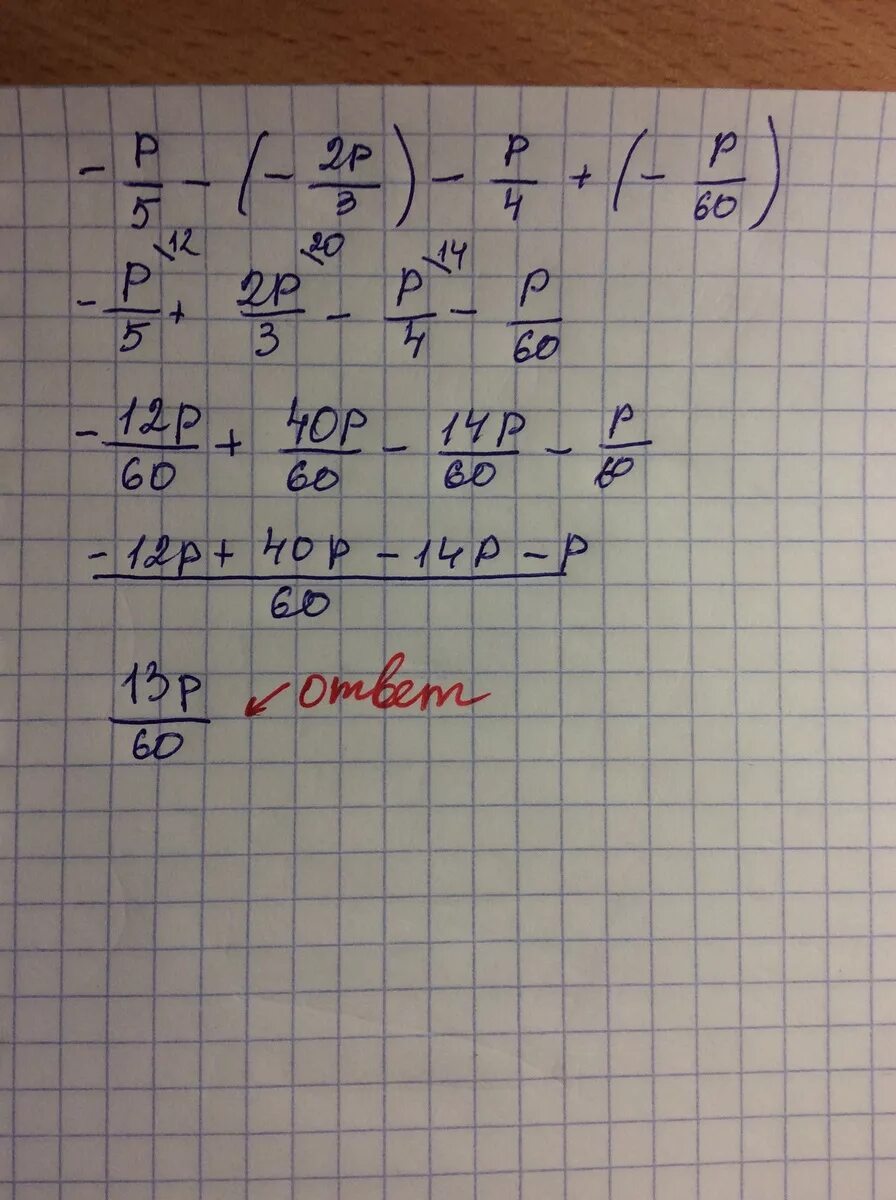 - P/5 - (- 2P/3) - P/4 + (- P/60)
- P/5 \12 + 2P/3 \20 - P/4 \14 - P/60
- 12P/60 + 40P/60 - 14P/60 - P/60
- 12P + 40P - 14P - P / 60
13P/60 ↙ ответ